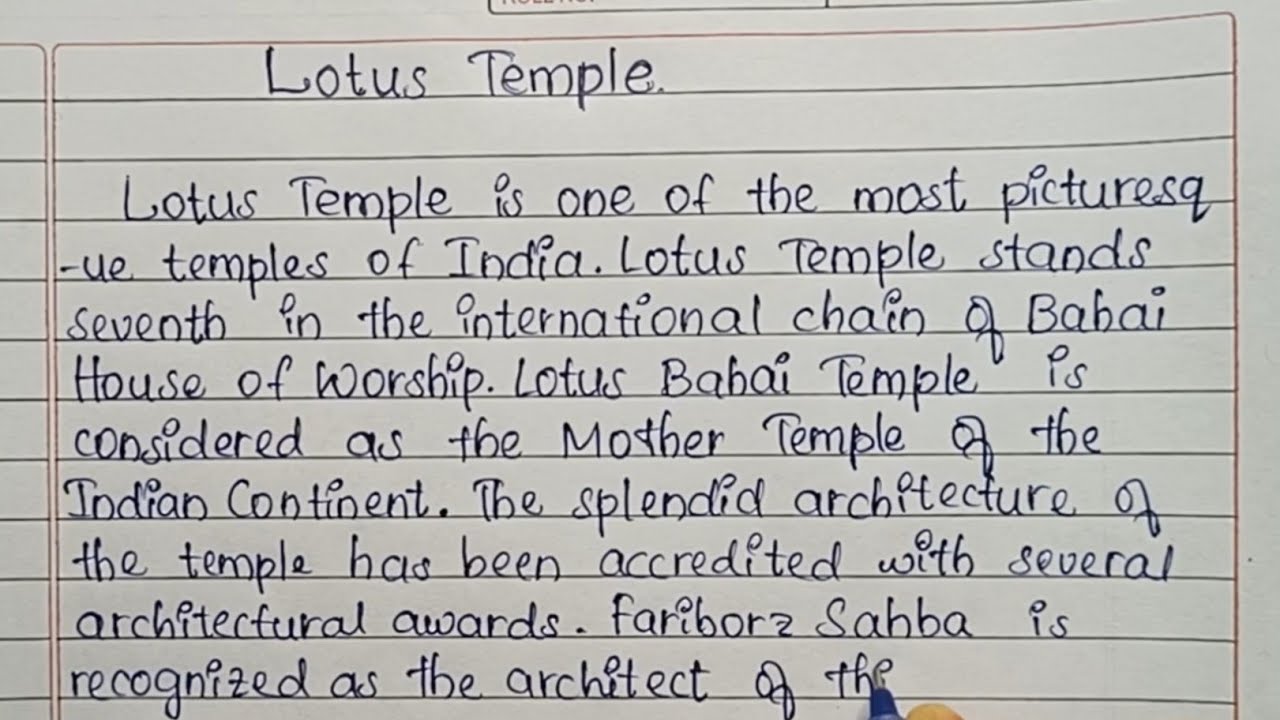 Lotus Temple.
Lotus Temple is one of the most picturesq
-ue temples of India. Lotus Temple stands
seventh in the international chain of Bahai
House of Worship. Lotus Bahai Temple is
considered as the Mother Temple of the
Indian Continent. The splendid architecture of
the temple has been accredited with several
architectural awards. Fariborz Sahba is
recognized as the architect of the